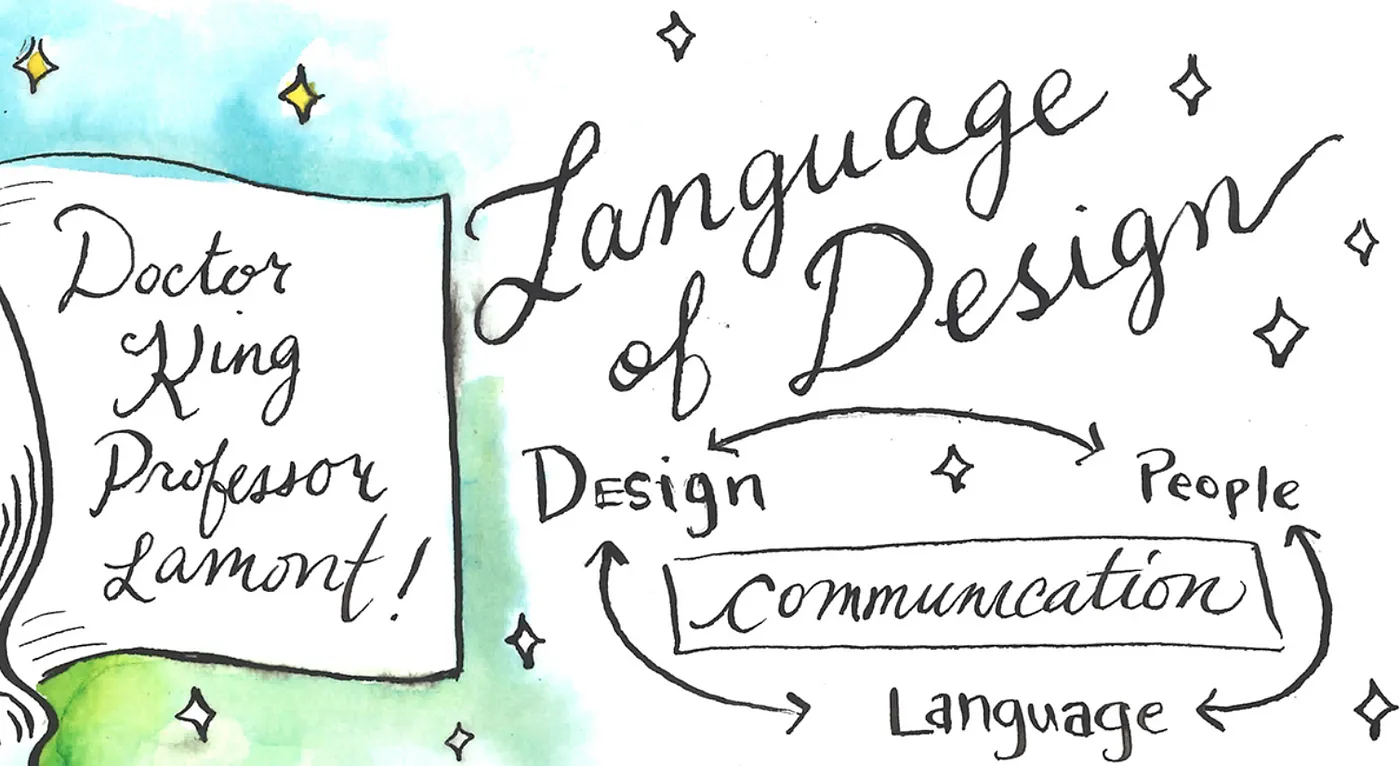 Doctor
King
Professor
Lamont!
Language
of Design
Design People
Communication
Language